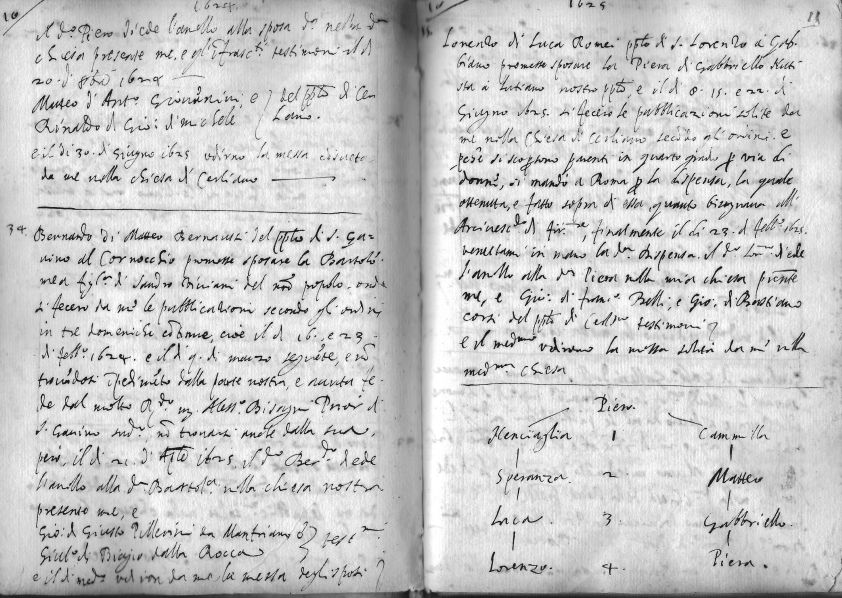 10
1624.
il do. Piero diede l'anello alla sposa da. nella da.
chiesa presente me, e gl'infrascti. testimoni il dì
20. d' 8bre 1624
Matteo d'Anto. Giovannini, e
Rinaldo di Gio: di Michele
del ppto di Cer
liano.
e il dì 30. di Giugno 1625 udirno la messa
da me nella chiesa di Cerliano
34.
Bernardo di Matteo Bernacchi del ppto di S. Ga-
vino al Cornocchio promesse sposare la Bartolo-
mea figla. di Sandro del nro popolo, onde
si fecero da me le pubblicazioni secondo gl'ordini
in tre domeniche cioè il dì 16. e 23.
di febbo. 1624. e il dì 9. di marzo seguete, e nō
trovādosi īpedimēto dalla parte nostra, e havuta fe-
de dal molto Rdo. Alesso. Prior di
S. Gavino sudo. nō trovarsi anche dalla sua,
però, il dì 21. di Aple 1625. il do. Berdo. diede
l'anello alla da. Bartola. nella chiesa nostra
presente me, e
Gio: di Giusto da Mantriano
di Biagio dalla Rocca
test
e il dì medo. udiron da me la messa degli sposi
1625
11
35.
Lorenzo di Luca Romei ppto di S. Lorenzo a Gab-
biano promette sposare la Piera di Gabbriello
a Lutiano nostro ppto e il dì 8. 15. e 22. di
Giugno 1625. si fecero le pubblicazioni solite da
me nella chiesa di Cerliano secōdo gl'ordini. e
perchè si scoprono parenti in quarto grado p via di
donne, si mandò a Roma p la dispensa, la quale
ottenuta, e fatto sopra di essa, quanto bisognava all'
Arcivescdo di Fire., finalmente il dì 23. di febbo. 1625.
venutami in mano la da. dispensa. il do. Lorzo. diede
l'anello alla da. Piera nella mia chiesa pnte
me, e Gio: di Franco. Belli, e Gio: di Bastiano
Corsi del ppto di testimoni
e il medmo udirono la messa solita da me nella
medma chiesa
Piero.
Menciaglia 1 Cammilla
Speranza. 2. Matteo
Luca. 3. Gabbriello.
Lorenzo. 4. Piera.